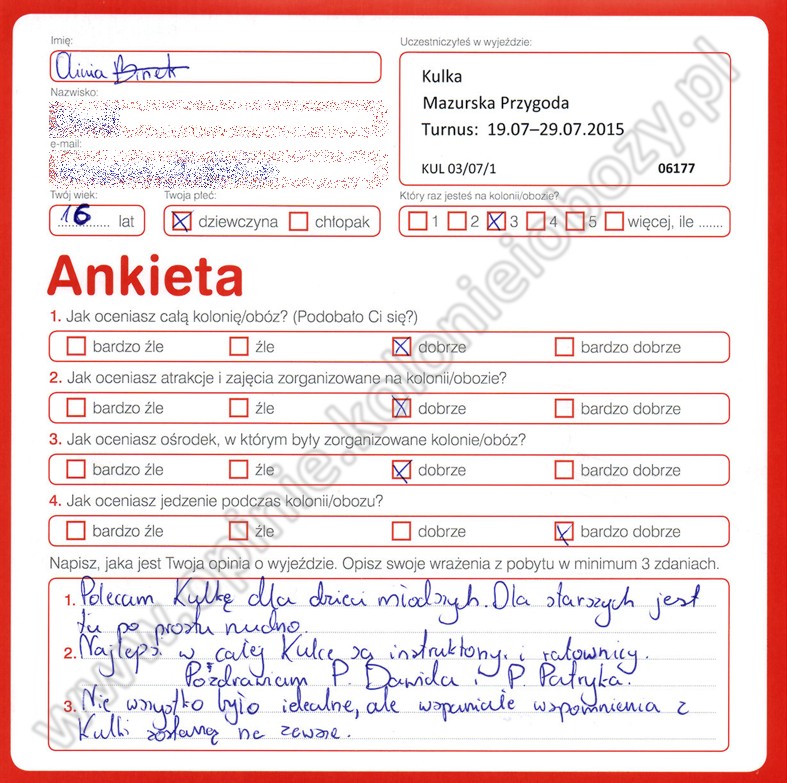 Imię:
Uczestniczyłeś w wyjeździe:
Kulka
Mazurska Przygoda
Turnus: 19.07–29.07.2015
KUL 03/07/1 06177
Nazwisko:
e-mail:
Twój wiek: Twoja płeć: Który raz jesteś na kolonii/obozie?
16 lat dziewczyna chłopak 1 2 3 4 5 więcej, ile .......
Ankieta
1. Jak oceniasz całą kolonię/obóz? (Podobało Ci się?)
bardzo źle źle dobrze bardzo dobrze
2. Jak oceniasz atrakcje i zajęcia zorganizowane na kolonii/obozie?
bardzo źle źle dobrze bardzo dobrze
3. Jak oceniasz ośrodek, w którym były zorganizowane kolonie/obóz?
bardzo źle źle dobrze bardzo dobrze
4. Jak oceniasz jedzenie podczas kolonii/obozu?
bardzo źle źle dobrze bardzo dobrze
Napisz, jaka jest Twoja opinia o wyjeździe. Opisz swoje wrażenia z pobytu w minimum 3 zdaniach.
1. Polecam Kulkę dla dzieci młodszych. Dla starszych jest
tu po prostu nudno.
2. Najlepsi w całej Kulce są instruktorzy i ratownicy.
Pozdrawiam P. Dawida i P. Patryka.
3. Nie wszystko było idealne, ale wspaniałe wspomnienia z
Kulki zostaną na zawsze.
www.opinie.kolonieiobozy.pl